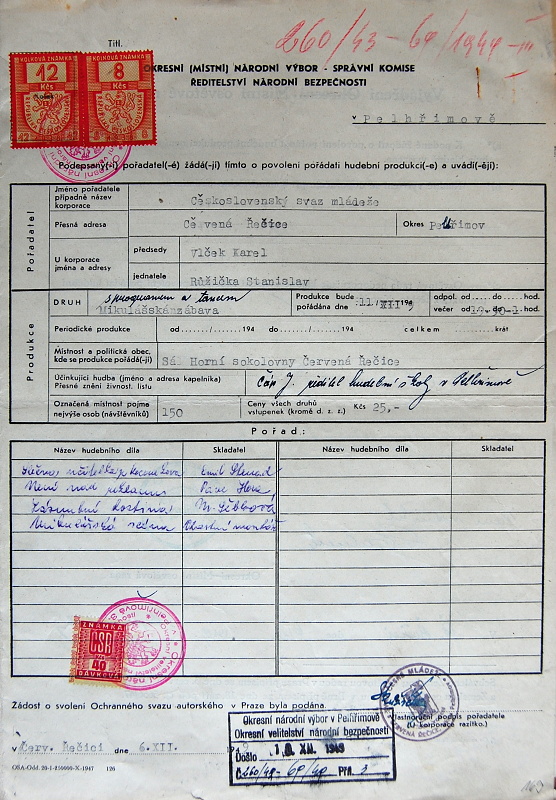 Titl.
260/43-69/1949-III
OKRESNÍ (MÍSTNÍ) NÁRODNÍ VÝBOR - SPRÁVNÍ KOMISE
ŘEDITELSTVÍ NÁRODNÍ BEZPEČNOSTI
KOLKOVÁ ZNÁMKA KOLKOVÁ ZNÁMKA
12 8
Kčs Kčs
v Pelhřimově
Podepsaný(-í) pořadatel(-é) žádá(-jí) tímto o povolení pořádati hudební produkci(-e) a uvádí(-ějí):
Pořadatel
Jméno pořadatele
případně název
korporace
Československý svaz mládeže
Přesná adresa Červená Řečice Okres Pelhřimov
U korporace
jména a adresy
předsedy Vlček Karel
jednatele Růžička Stanislav
Produkce
DRUH s programem a tancem
Mikulášskánzábava
Produkce bude
pořádána dne 11/XII 1949
odpol. od do hod.
večer od 19.30-1 hod.
Periodické produkce od / 194 do / 194 celkem krát
Místnost a politická obec,
kde se produkce pořádá(-jí)
Sál Horní sokolovny Červená Řečice
Účinkující hudba (jméno a adresa kapelníka)
Přesné znění živnost. listu
Čáp J. ředitel hudební školy v Pelhřimově
Označená místnost pojme
nejvýše osob (návštěvníků)
150
Ceny všech druhů
vstupenek (kromě d. z. z.)
Kčs 25,-
Pořad:
Název hudebního díla Skladatel Název hudebního díla Skladatel
Není nad reklamu
Mikulášská scéna
ZNÁMKA
ČSR
40
DÁVKOVÁ
Žádost o svolení Ochranného svazu autorského v Praze byla podána.
Vlastnoruční podpis pořadatele
(U korporace razítko.)
v Červ. Řečici dne 6.XII. 1949
Okresní národní výbor v Pelhřimově
Okresní velitelství národní bezpečnosti
Došlo 10. XII. 1949
Č. 260/43-69/49 Příl. 3
OSA-Odd. 20-1-250000-X-1947 126
163